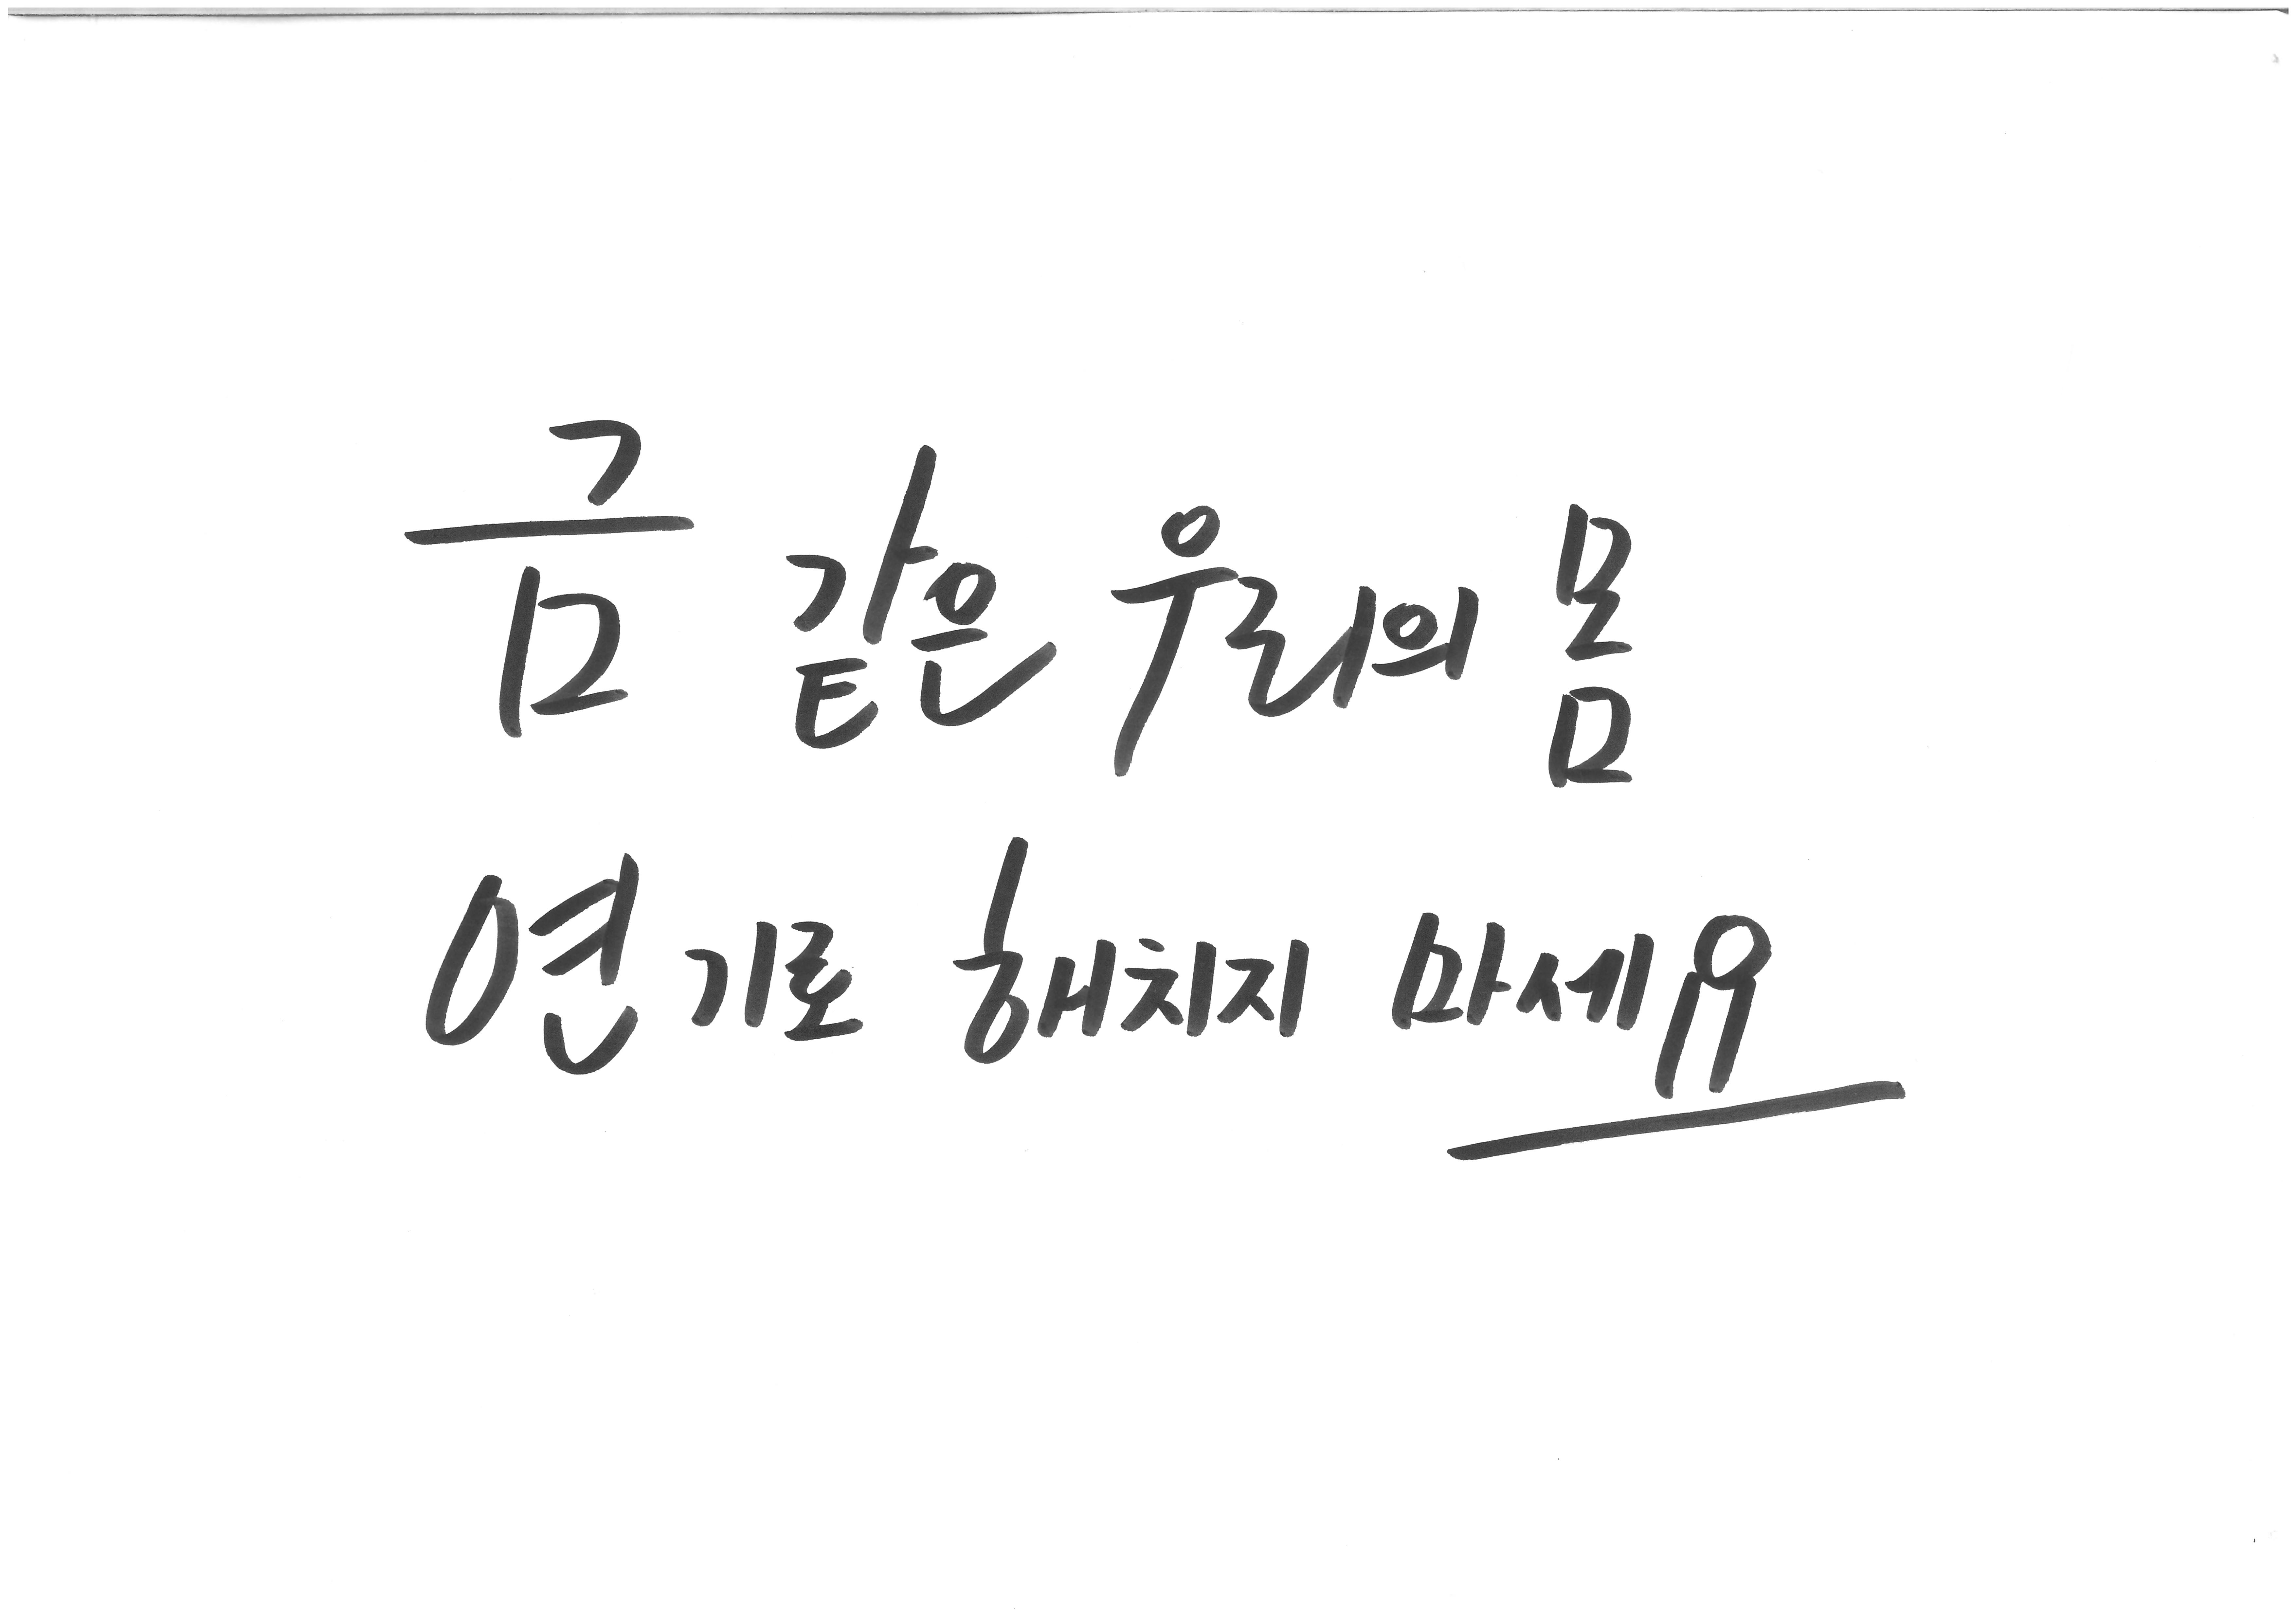 금 같은 우리의 몸
연기로 해치지 마세요